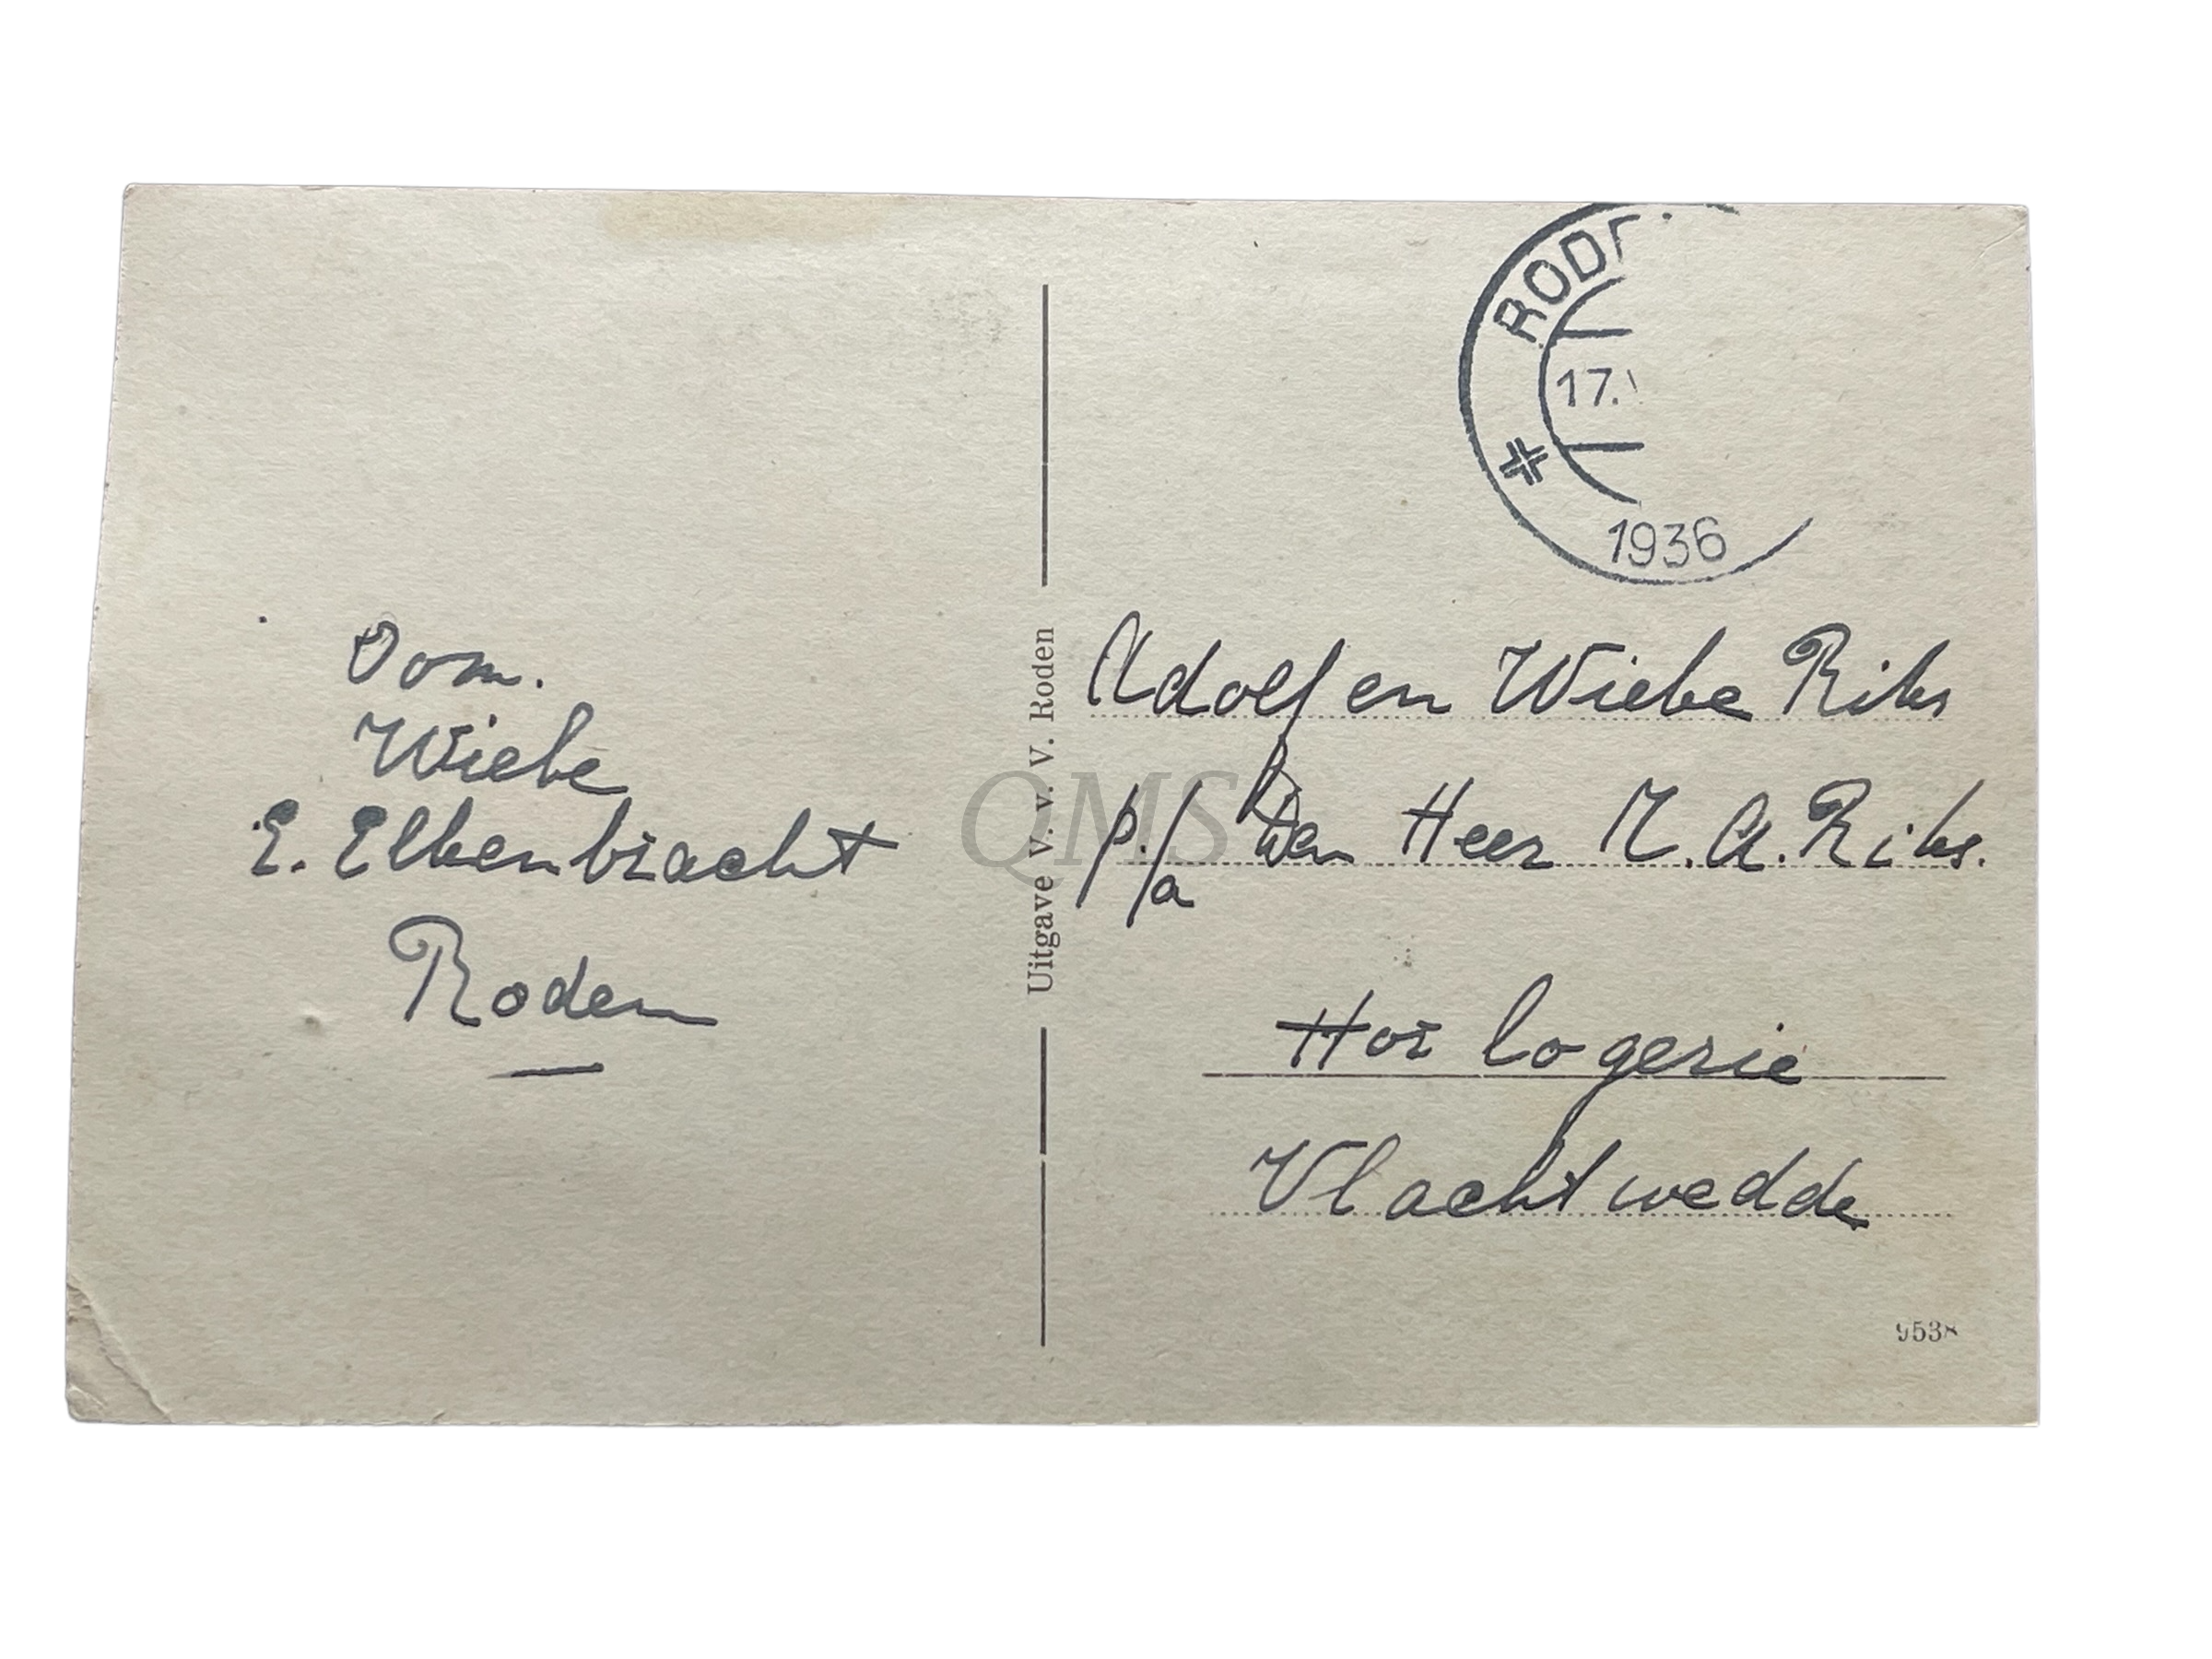 Oom.
Wiebe
E. Elkenbracht
Roden
Uitgave V. v. V. Roden
QMS
ROD
17.
1936
Adolf en Wiebe
p./a Den Heer A.
Horlogerie
Vlachtwedde